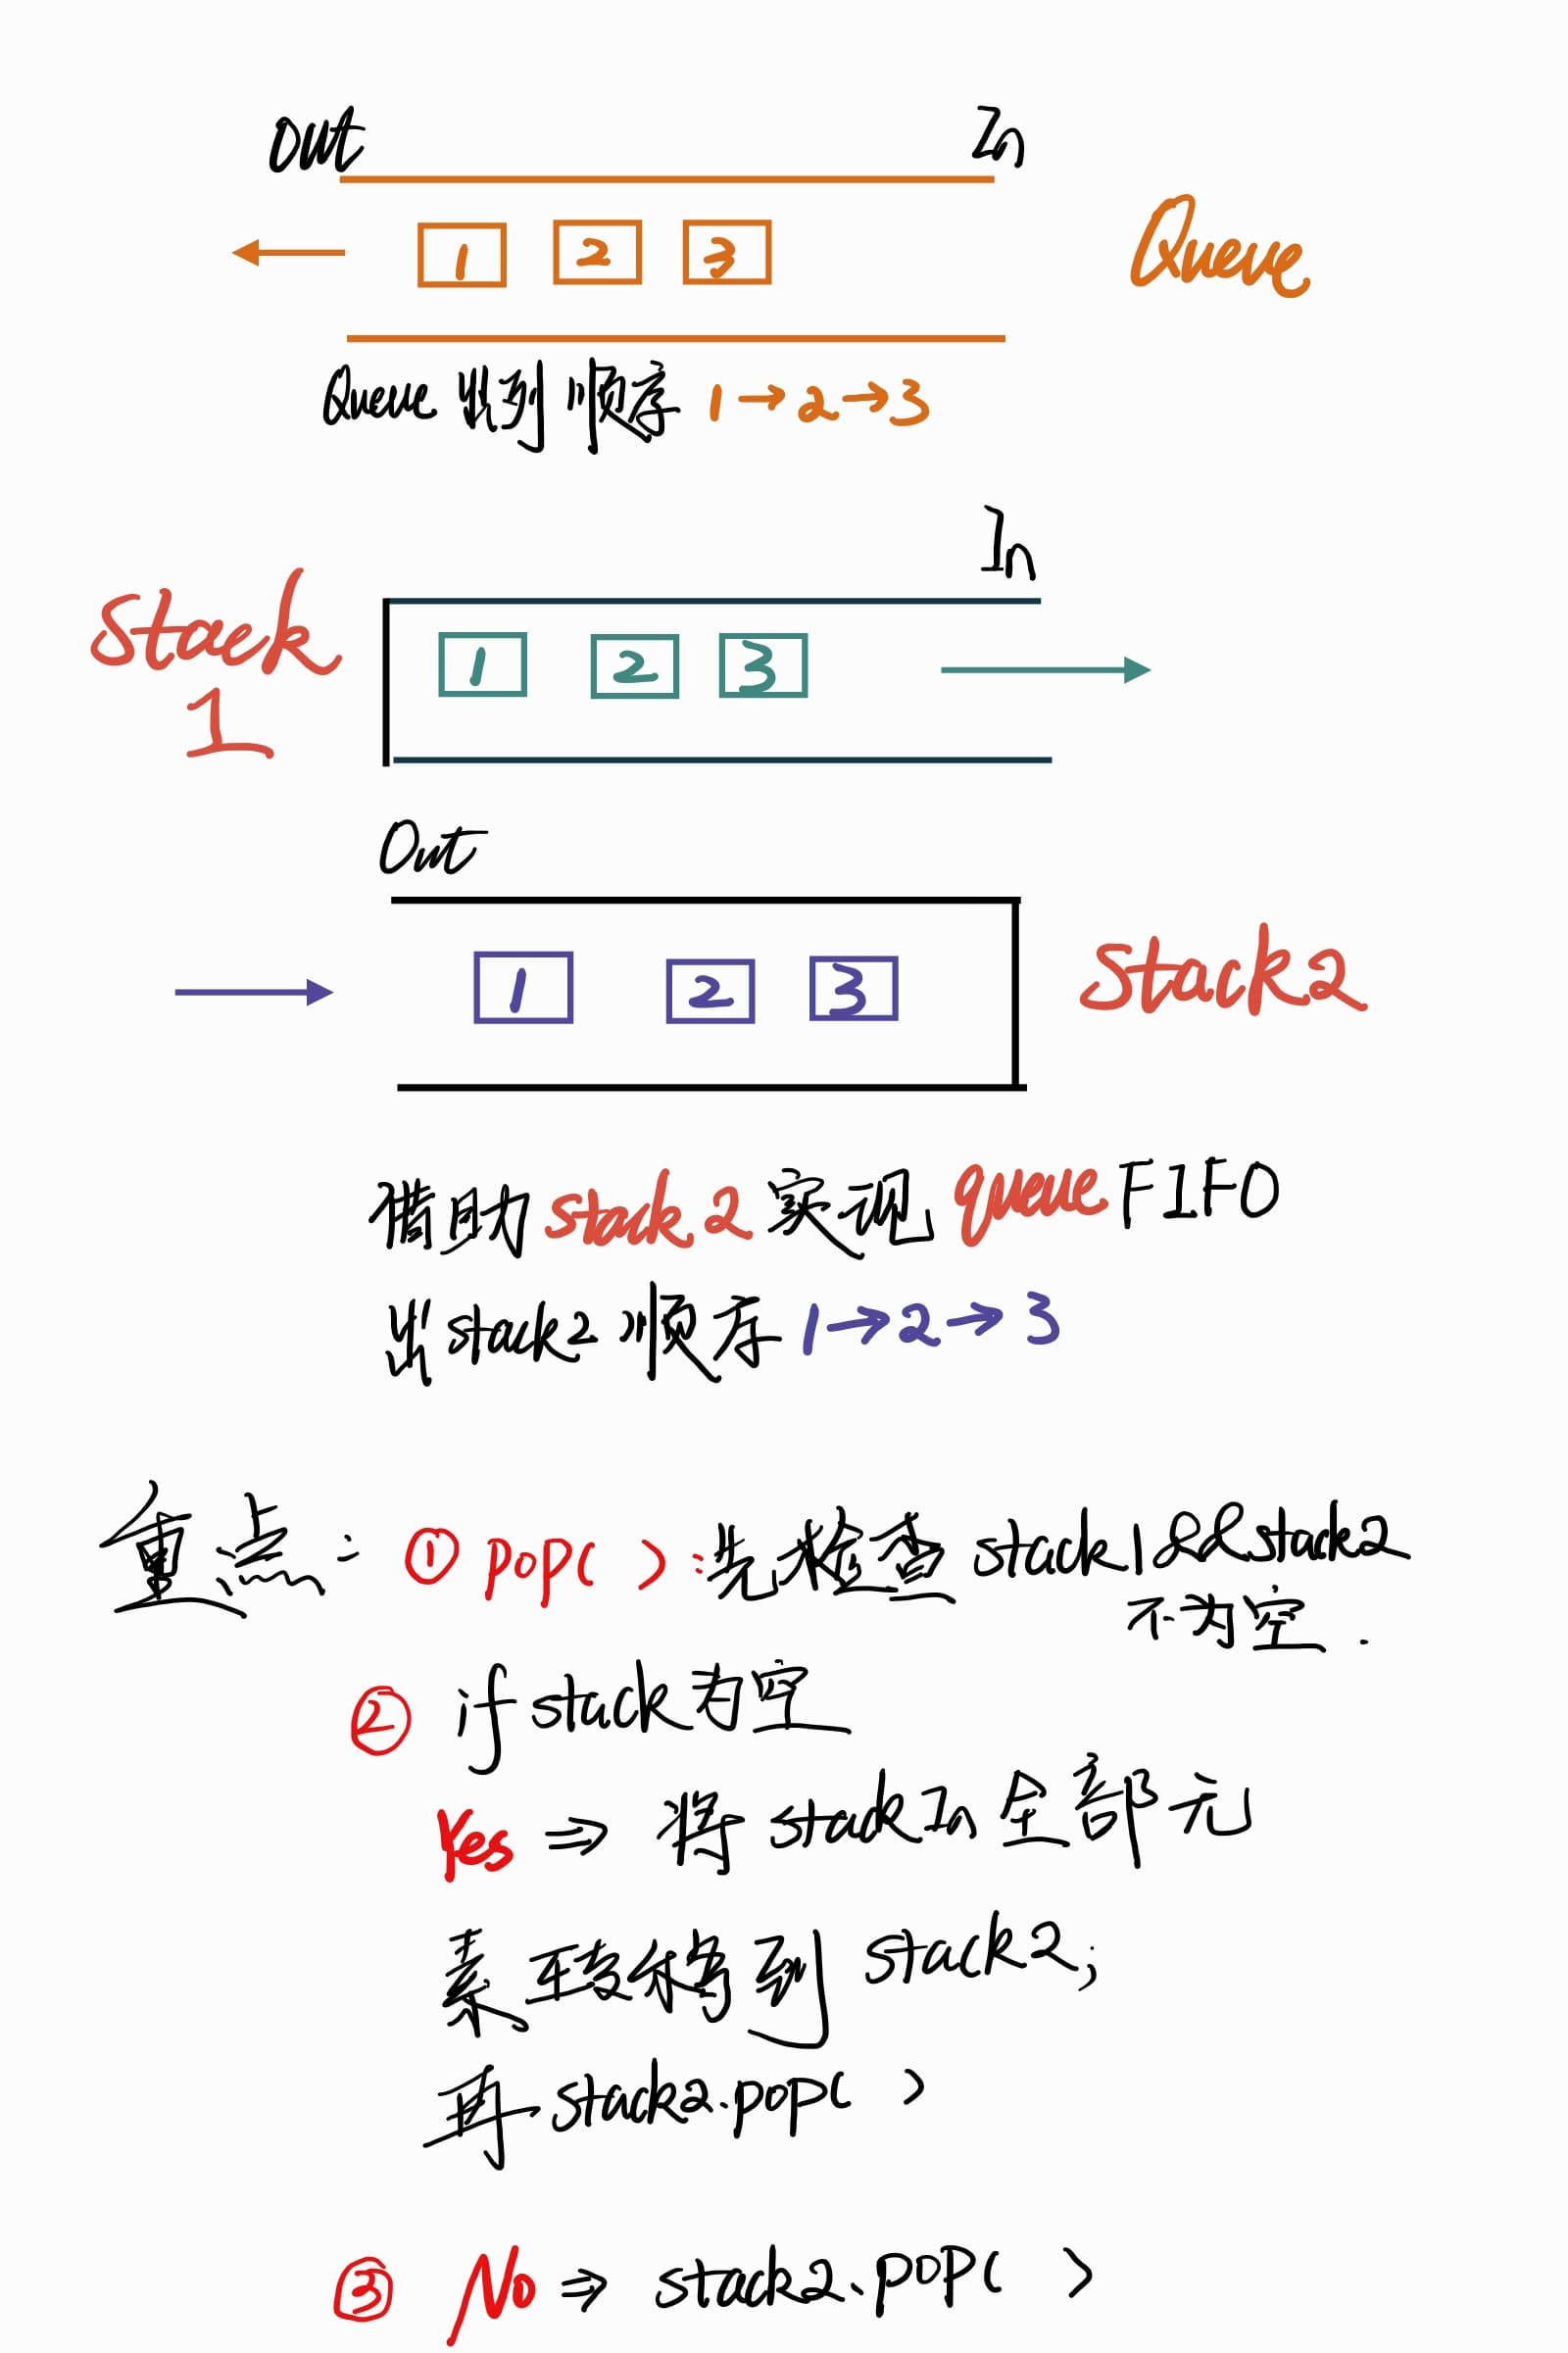 Out In
1 2 3
Queue
Queue 出列顺序 1→2→3
In
Stack
1
1 2 3
Out
1 2 3
Stack2
借助 stack2 实现 queue FIFO
出 stack2 顺序 1→2→3
重点: ① pop( ): 先检查 stack1 && stack2
不为空.
② if stack为空
Yes ⇒ 将 stackIn 全部元
素 转移到 stack2;
再 stack2.pop( )
③ No ⇒ stack2.pop( )